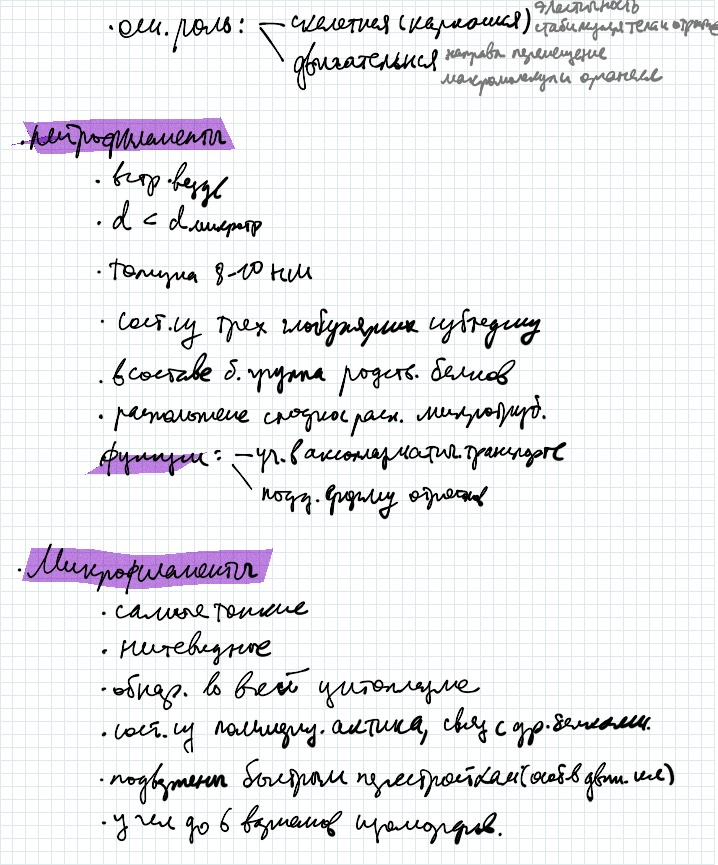 · осн. роль: – скелетная (каркасная) эластичность
стабилизация тела и отростков
двигательная направл перемещение
макромолекул и органелл
· Нейрофиламенты
· встр. везде
· d < d микротр
· толщина 8-10 нм
· сост. из трех глобулярных субъединиц
· в составе б. группа родств. белков
· расположение сходно с расп. микротруб.
функции: – уч. в аксоплазматич. транспорте
подд. форму отростков
· Микрофиламенты
· самые тонкие
· нитевидные
· обнар. во всей цитоплазме
· сост. из полимериз. актина, связ с др. белками.
· подвержены быстрым перестройкам (особ в движ. кле)
· у чел до 6 вариантов изоморфов.